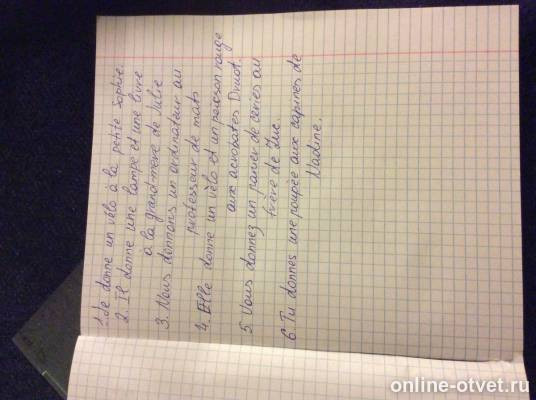 1. Je donne un vélo à la petite Sophie.
2. Il donne une lampe et une livre
à la grand-mère de Julie
3. Nous donnons un ordinateur au
professeur de mats
4. Elle donne un vélo et un poisson rouge
aux acrobates Druot.
5 Vous donnez un panier de ceries au
frère de Luc.
6. Tu donnes une poupée aux copines de
Nadine.
online-otvet.ru